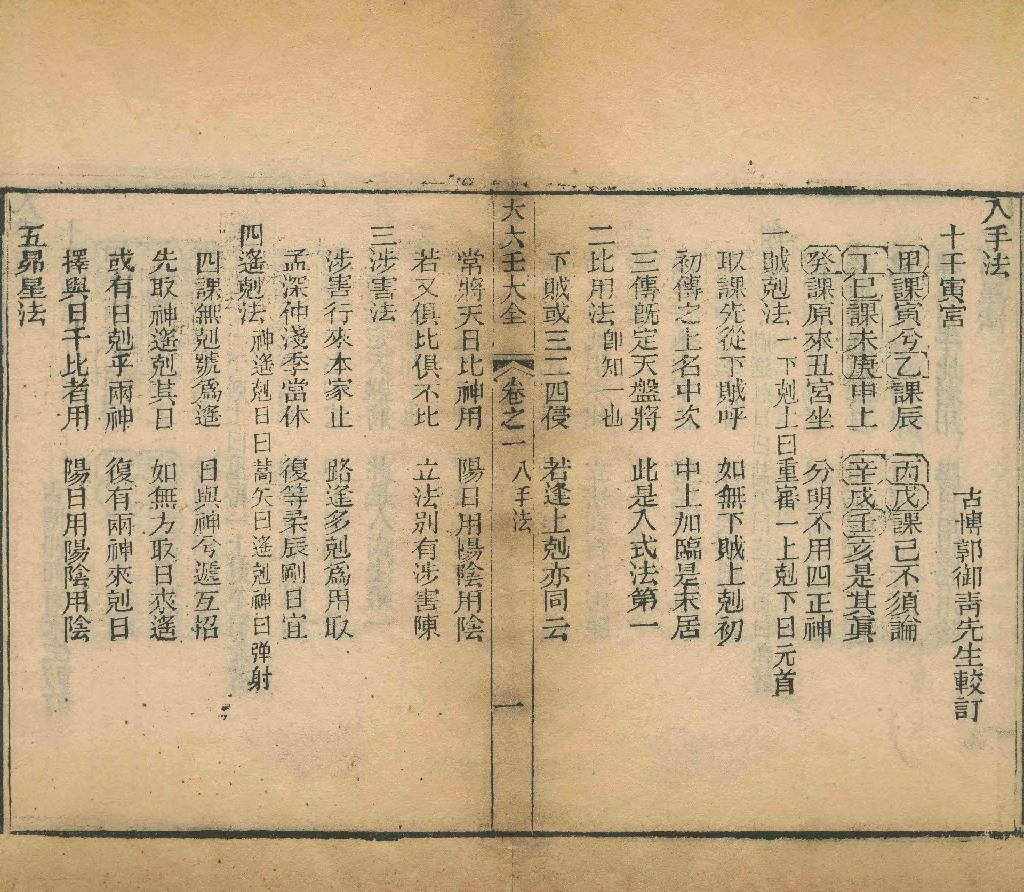 入手法
古博郭御青先生較訂
十干寅宮
甲課寅兮乙課辰　丙戊課巳不須論
丁巳課未庚申上　辛戌壬亥是其真
癸課原來丑宮坐　分明不用四正神
一賊剋法　一下剋上曰重審一上剋下曰元首
取課先從下賊呼　如無下賊上剋初
初傳之上名中次　中上加臨是末居
三傳旣定天盤將　此是入式法第一
二比用法　卽知一也
下賊或三二四侵　若逢上剋亦同云
大六壬大全　卷之一　入手法　一
常將天日比神用　陽日用陽陰用陰
若又俱比俱不比　立法別有涉害陳
三涉害法
涉害行來本家止　路逢多剋爲用取
孟深仲淺季當休　復等柔辰剛日宜
四遙剋法　神遙剋日曰蒿矢日遙剋神曰弹射
四課無剋號爲遙　日與神兮遞互招
先取神遙剋其日　如無方取日來遙
或有日剋乎兩神　復有兩神來剋日
擇與日干比者用　陽日用陽陰用陰
五昴星法